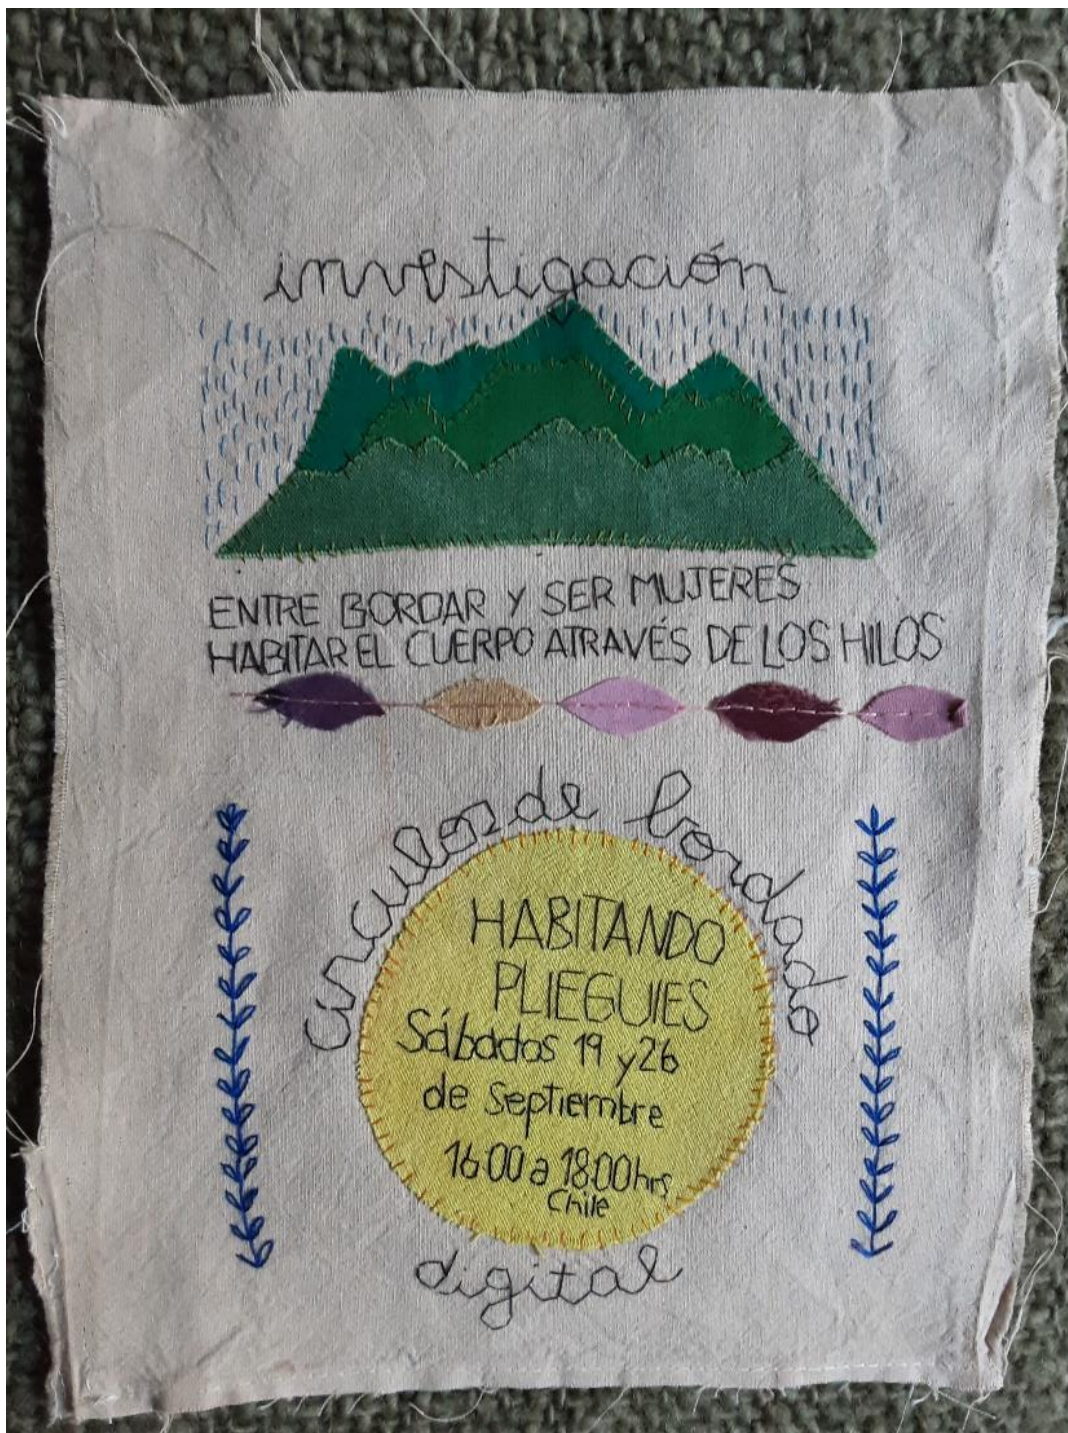 investigación
ENTRE BORDAR Y SER MUJERES
HABITAR EL CUERPO ATRAVÉS DE LOS HILOS
circulos de bordado
HABITANDO
PLIEGUIES
Sábados 19 y 26
de Septiembre
16:00 a 18:00 hrs
Chile
digital